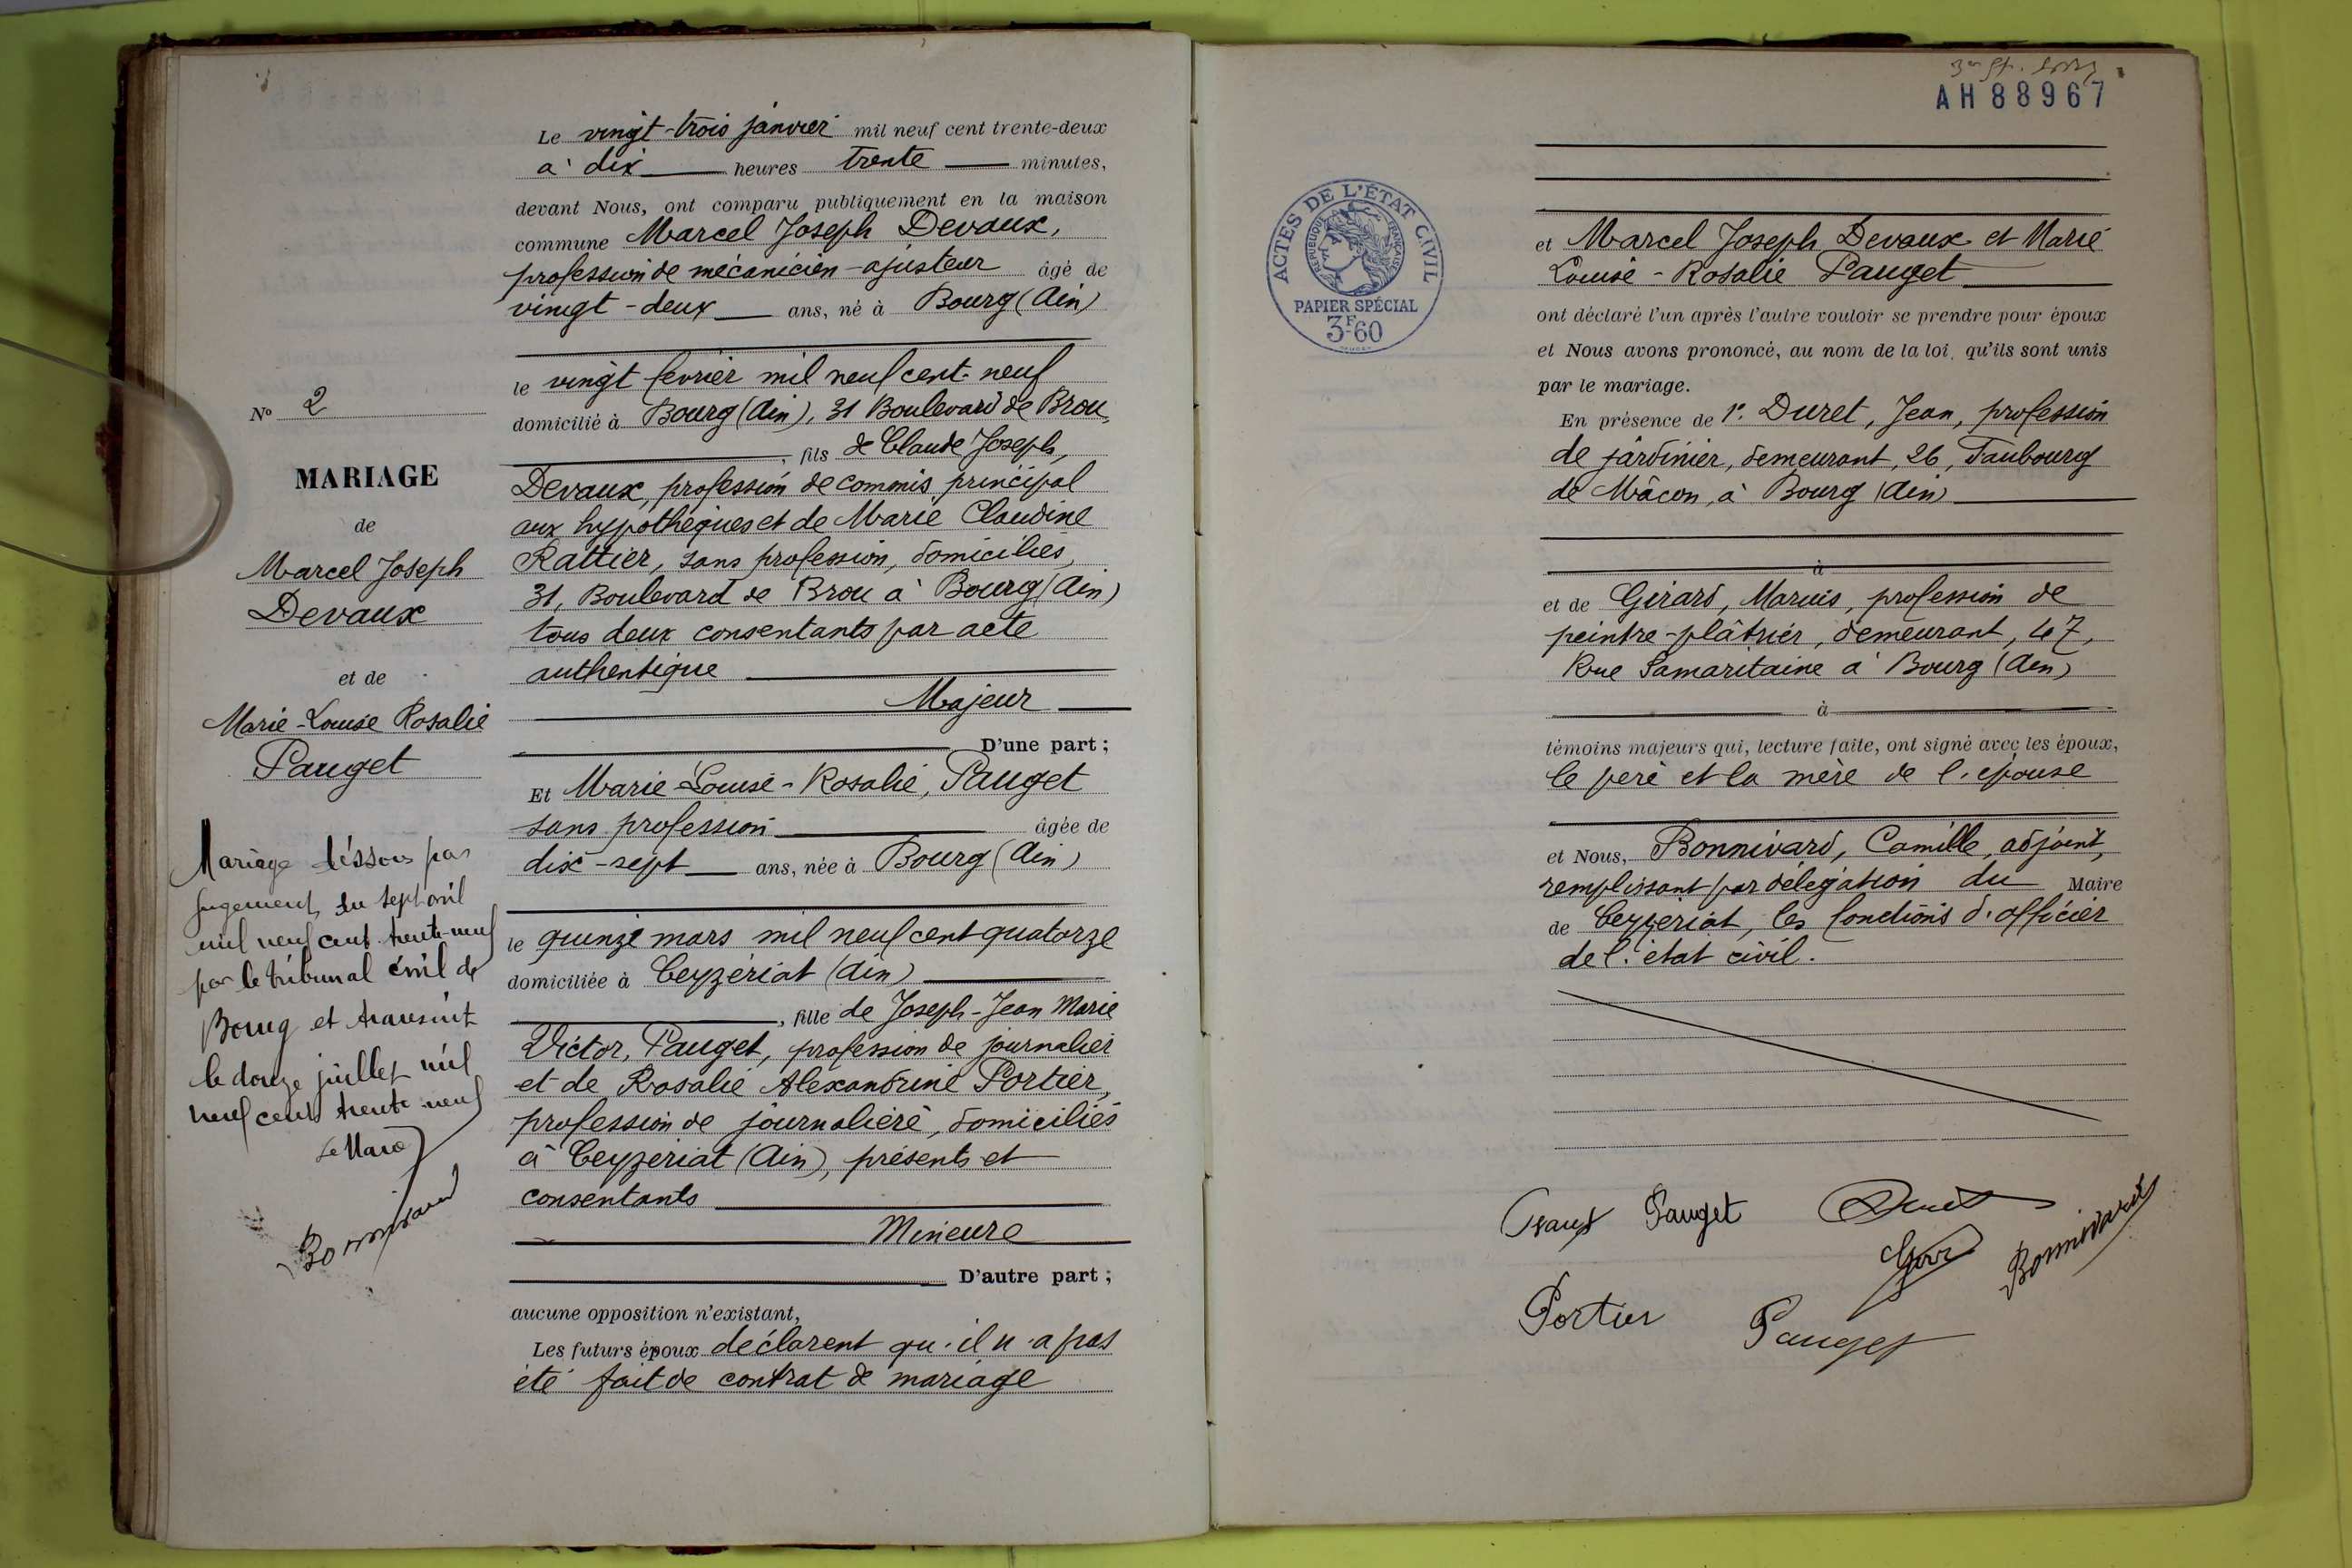 N° 2
MARIAGE
de
Marcel Joseph
Devaux
et de
Marie-Louise Rosalie
Pauget
Mariage dissous par
jugement du sept avril
mil neuf cent trente-neuf
par le tribunal civil de
Bourg et transcrit
le douze juillet mil
neuf cent trente-neuf
Le Maire
Bonnivard
Le vingt-trois janvier mil neuf cent trente-deux
à dix heures trente minutes,
devant Nous, ont comparu publiquement en la maison
commune Marcel Joseph Devaux,
profession de mécanicien-ajusteur âgé de
vingt-deux ans, né à Bourg (Ain)
le vingt février mil neuf cent neuf
domicilié à Bourg (Ain), 31 Boulevard de Brou,
, fils de Claude Joseph,
Devaux, profession de commis principal
aux hypothèques et de Marie Claudine
Rattier, sans profession, domiciliés,
31, Boulevard de Brou à Bourg (Ain)
tous deux consentants par acte
authentique
Majeur
D'une part ;
Et Marie-Louise-Rosalie, Pauget
sans profession âgée de
dix-sept ans, née à Bourg (Ain)
le quinze mars mil neuf cent quatorze
domiciliée à Ceyzériat (Ain)
, fille de Joseph-Jean Marie
Victor, Pauget, profession de journalier
et de Rosalie Alexandrine Portier,
profession de journalière, domiciliés
à Ceyzériat (Ain), présents et
consentants
Mineure
D'autre part ;
aucune opposition n'existant,
Les futurs époux déclarent qu'il n'a pas
été fait de contrat de mariage
AH88967
ACTES DE L'ÉTAT CIVIL
RÉPUBLIQUE FRANÇAISE
PAPIER SPÉCIAL
3F60
et Marcel Joseph Devaux et Marie
Louise-Rosalie Pauget
ont déclaré l'un après l'autre vouloir se prendre pour époux
et Nous avons prononcé, au nom de la loi, qu'ils sont unis
par le mariage.
En présence de 1°. Duret, Jean, profession
de jardinier, demeurant, 26, Faubourg
de Mâcon, à Bourg (Ain)
à
et de Girard, Marius, profession de
peintre-plâtrier, demeurant, 47,
Rue Samaritaine à Bourg (Ain)
à
témoins majeurs qui, lecture faite, ont signé avec les époux,
le père et la mère de l'épouse
et Nous, Bonnivard, Camille, adjoint,
remplissant par délégation du Maire
de Ceyzériat, les fonctions d'officier
de l'état civil.
Pauget Duret
Bonnivard
Portier Pauget